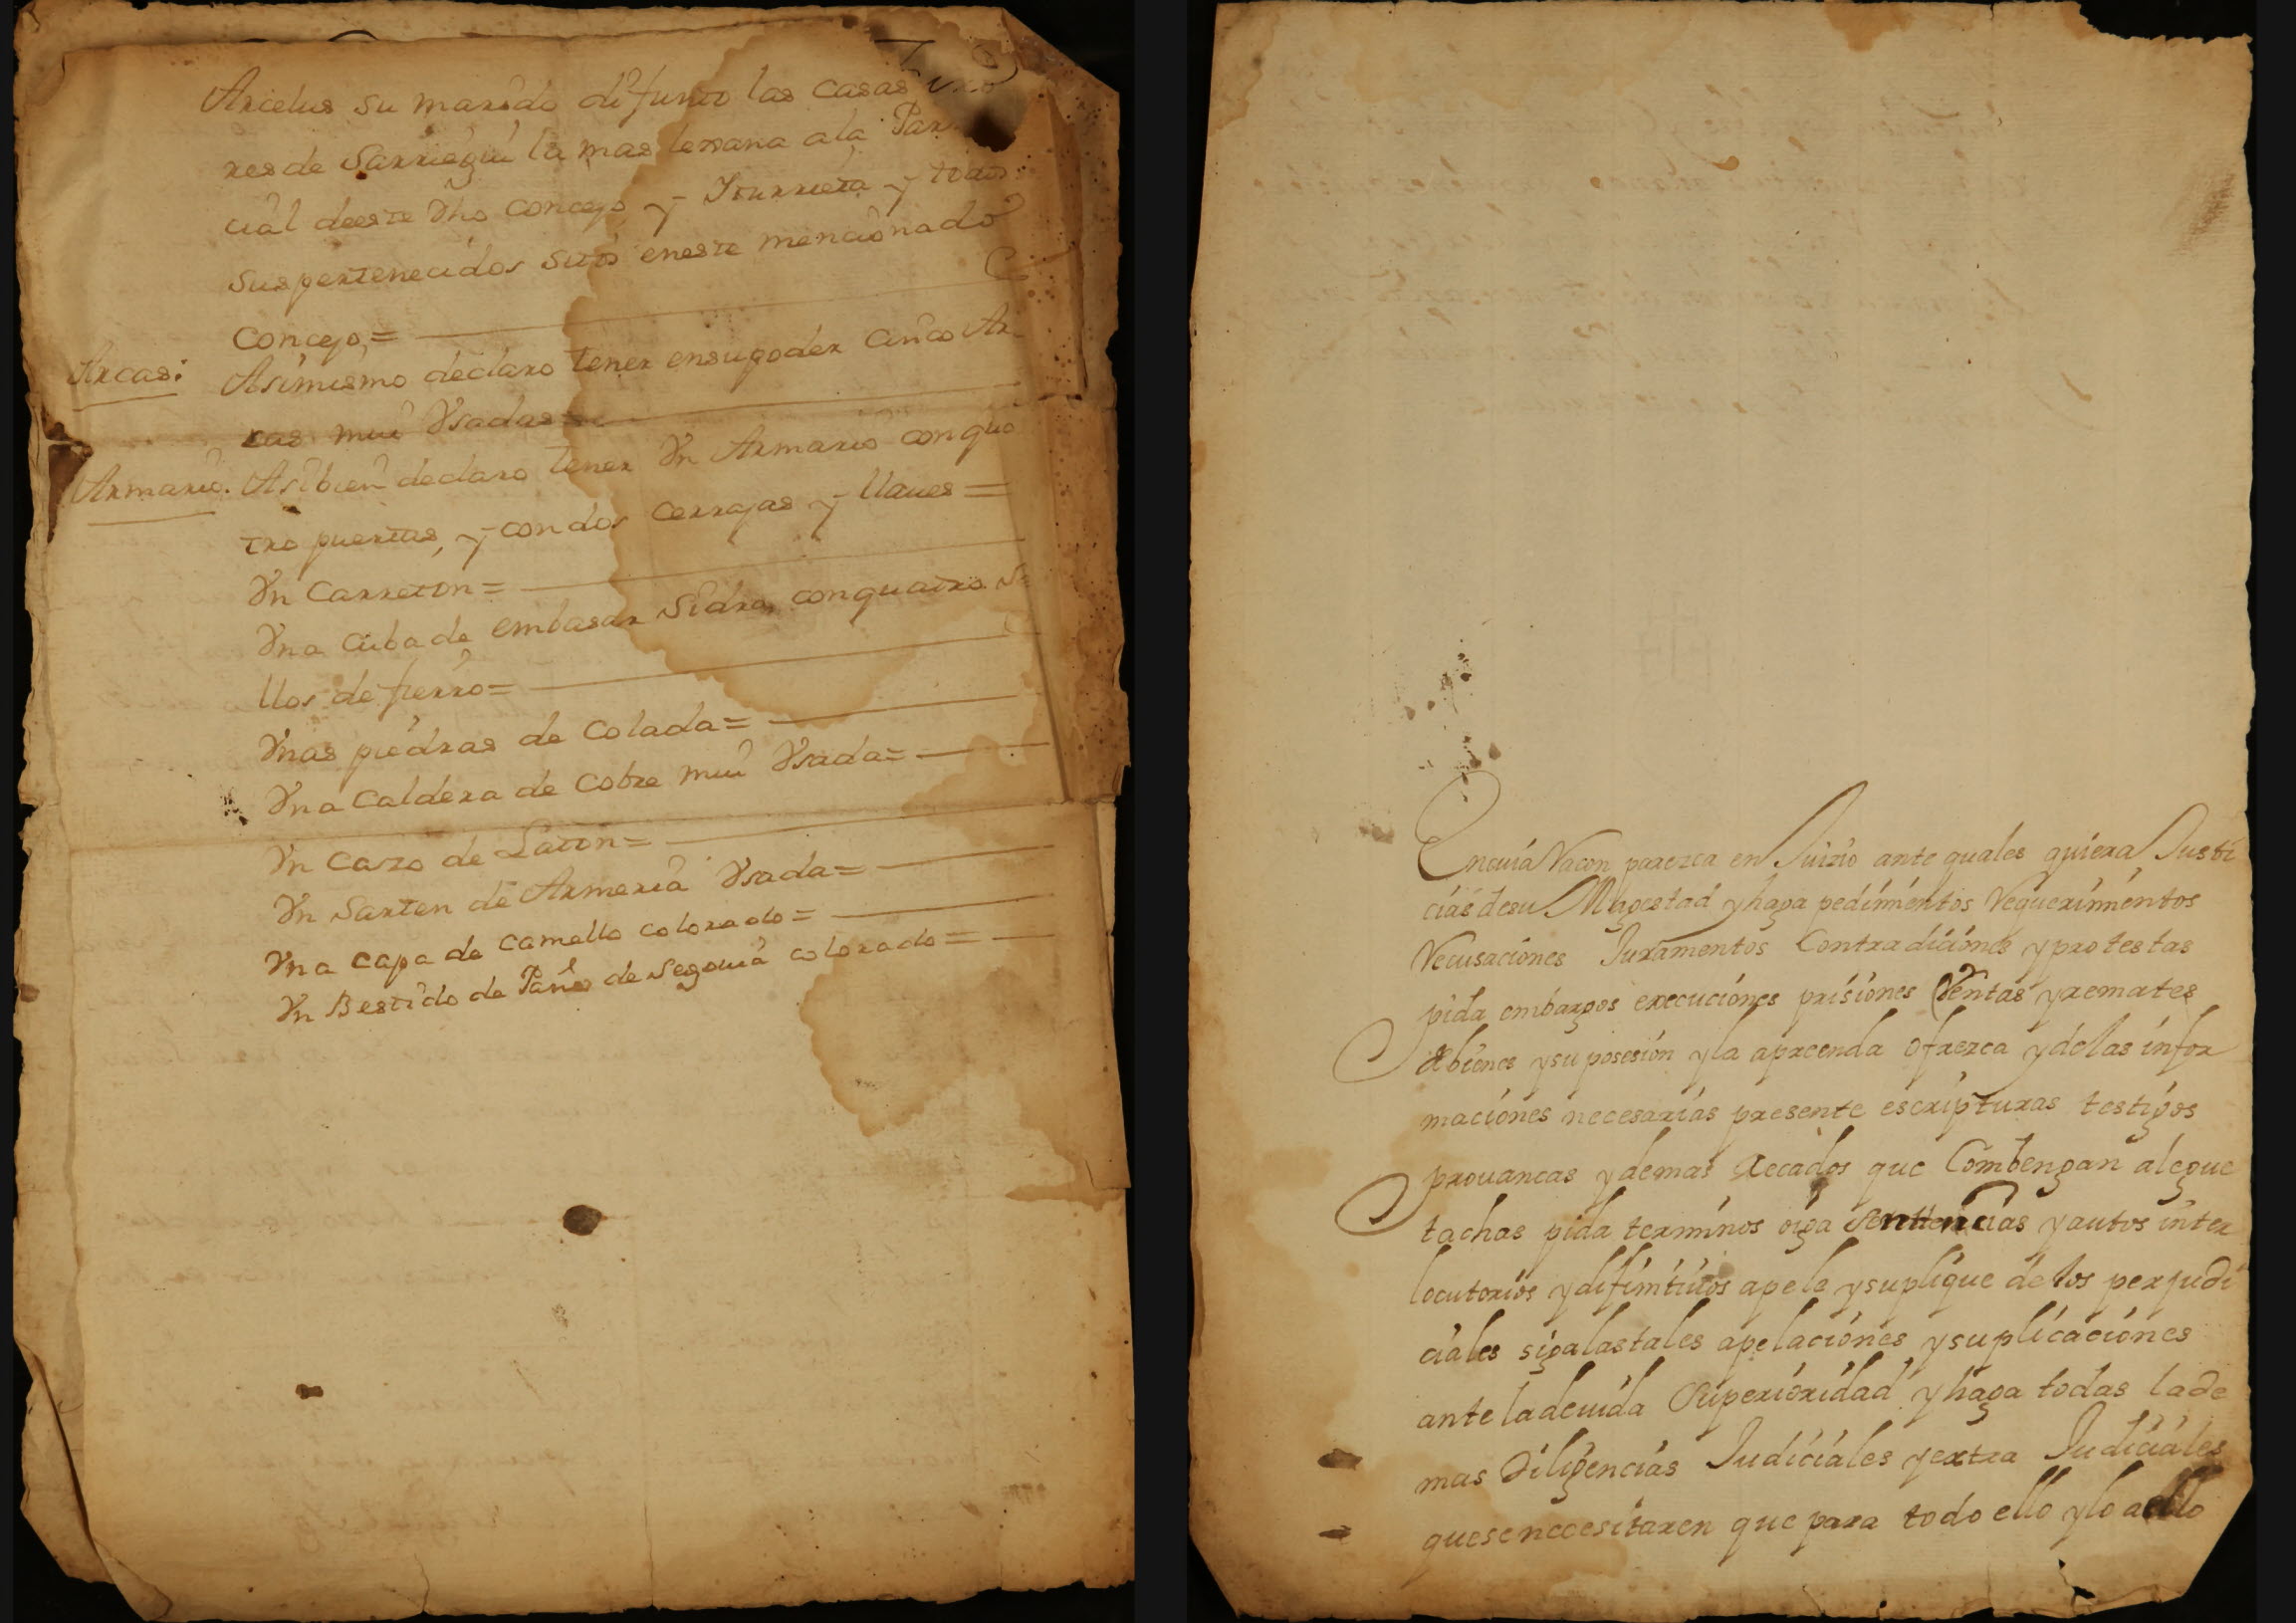 Arcelus su marido difunto las casas
res de Sarriegui la mas lexana ala Par
cial deeste dho concejo, y Iturrieta y todos
sus pertenecidos sitos eneste mencionado
Concejo,=
Arcas: Asimismo declaro tener ensupoder cinco Ar
cas mui Vsadas=
Armario. Asibien declaro tener Vn Armario con qua
tro puertas, y con dos cerrajas y llaues=
Vn Carreton=
Vna Cuba de embasar Sidra, conquatro
llos de fierro=
Vnas piedras de Colada=
Vna Caldera de Cobre mui Vsada=
Vn Cazo de Laton=
Vn Sarten de Armeria Vsada=
Vna Capa de Camello colorado=
Vn Bestido de Paño de Segouia colorado=
Encuia Racon parezca en Juizio ante quales quiera Justi
cias desu Magestad y haga pedimientos Requerimientos
Recusaciones Juramentos Contradiciones y protestas
pida embargos execuciones prisiones Ventas y remates
de bienes y su posesion y la aprenda ofrezca y de las infor
maciones necesarias presente escripturas testigos
prouancas y demas Recados que Combengan alegue
tachas pida terminos oiga Senttencias y autos inter
locutorios y difinitiuos apele y suplique de los perjudi
ciales siga las tales apelaciones y suplicaciones
ante la deuida Superioridad y haga todas la de
mas Diligencias Judiciales y extra Judiciales
que se necesitaren que para todo ello y lo a ello